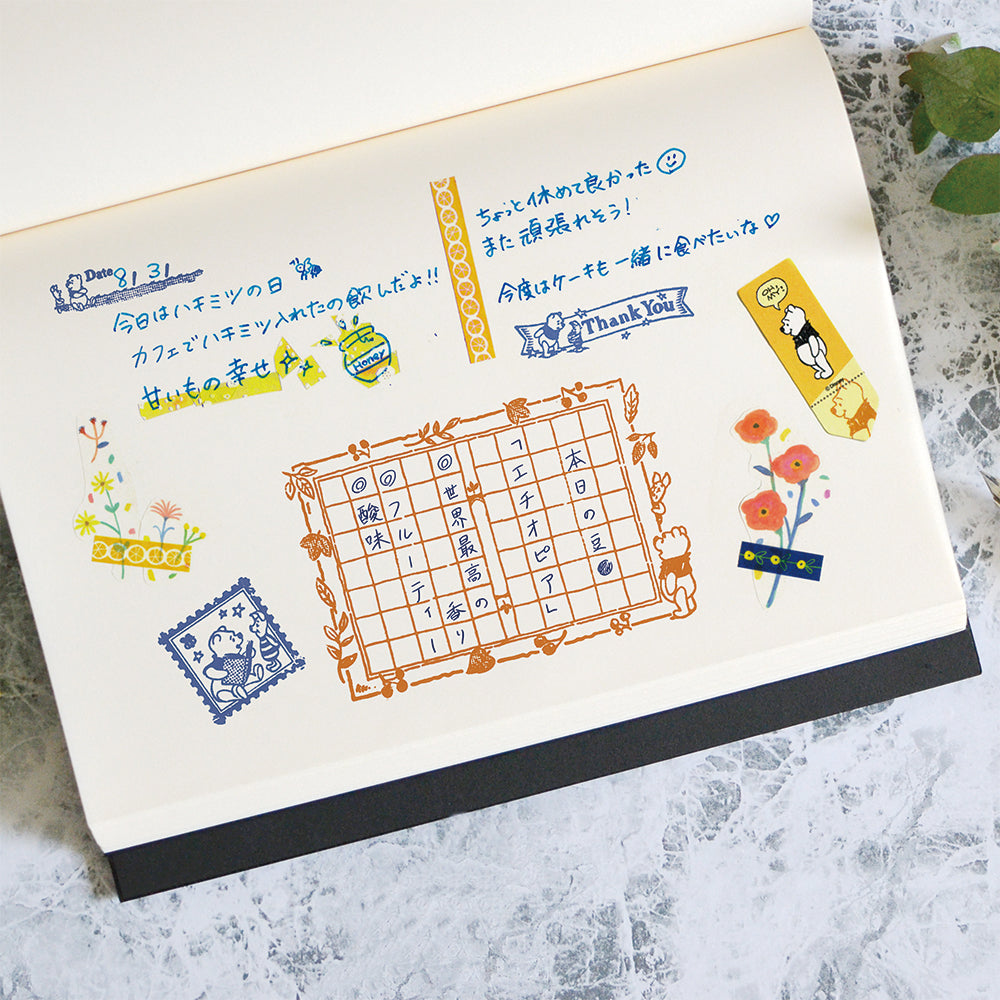 Date 8/31
今日はハチミツの日
カフェでハチミツ入れたの飲んだよ!!
甘いもの幸せ
Honey
ちょっと休めて良かった
また頑張れそう!
今度はケーキも一緒に食べたいな♡
Thank You
OH MY!
© Disney
本日の豆
「エチオピア」
◎世界最高の香り
◎フルーティー
◎酸味